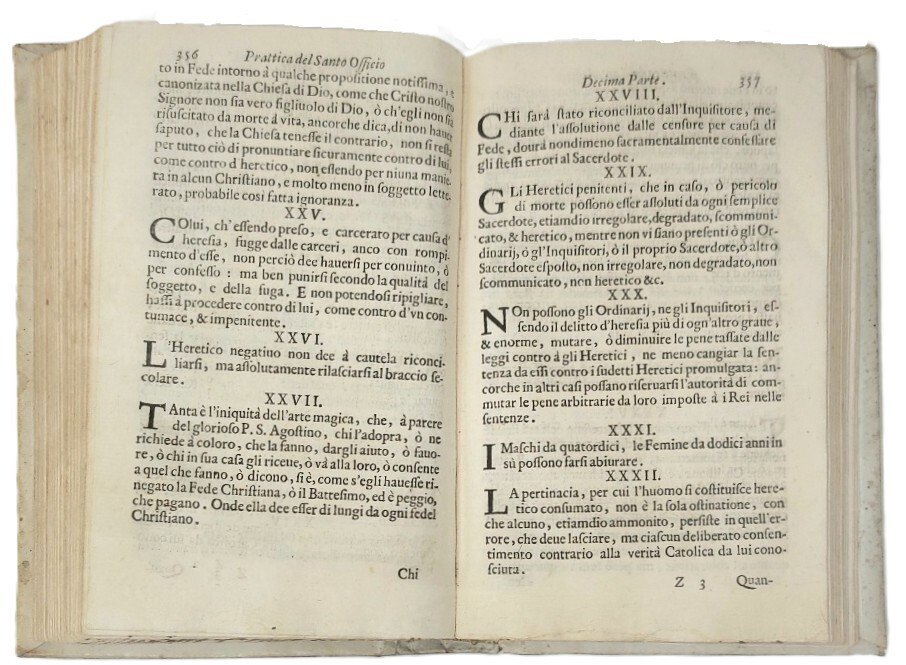 356 Prattica del Santo Officio
to in Fede intorno à qualche propositione notissima, e
canonizata nella Chiesa di Dio, come che Cristo nostro
Signore non sia vero figliuolo di Dio, ò ch'egli non sia
risuscitato da morte à vita, ancorche dica, di non hauer
saputo, che la Chiesa tenesse il contrario, non si resta
per tutto ciò di pronuntiare sicuramente contro di lui,
come contro d'heretico, non essendo per niuna manie-
ra in alcun Christiano, e molto meno in soggetto lette-
rato, probabile così fatta ignoranza.
XXV.
COlui, ch'essendo preso, e carcerato per causa d'
heresia, fugge dalle carceri, anco con rompi-
mento d'esse, non perciò dee hauersi per conuinto, ò
per confesso: ma ben punirsi secondo la qualità del
soggetto, e della fuga. E non potendosi ripigliare,
hassi à procedere contro di lui, come contro d'vn con-
tumace, & impenitente.
XXVI.
L'Heretico negatiuo non dee à cautela riconci-
liarsi, ma assolutamente rilasciarsi al braccio se-
colare.
XXVII.
TAnta è l'iniquità dell'arte magica, che, à parere
del glorioso P. S. Agostino, chi l'adopra, ò ne
richiede à coloro, che la fanno, dargli aiuto, ò fauo-
re, ò chi in sua casa gli riceue, ò và alla loro, ò consente
a quel che fanno, ò dicono, si è, come s'egli hauesse ri-
negato la Fede Christiana, ò il Battesimo, ed è peggio,
che pagano. Onde ella dee esser di lungi da ogni fedel
Christiano.
Chi
Decima Parte. 357
XXVIII.
CHi sarà stato riconciliato dall'Inquisitore, me-
diante l'assolutione dalle censure per causa di
Fede, dourà nondimeno sacramentalmente confessare
gli stessi errori al Sacerdote.
XXIX.
GLi Heretici penitenti, che in caso, ò pericolo
di morte possono esser assoluti da ogni semplice
Sacerdote, etiamdio irregolare, degradato, scommuni-
cato, & heretico, mentre non vi siano presenti ò gli Or-
dinarij, ò gl'Inquisitori, ò il proprio Sacerdote, ò altro
Sacerdote esposto, non irregolare, non degradato, non
scommunicato, non heretico &c.
XXX.
NOn possono gli Ordinarij, ne gli Inquisitori, es-
sendo il delitto d'heresia più di ogn'altro graue,
& enorme, mutare, ò diminuire le pene tassate dalle
leggi contro à gli Heretici, ne meno cangiar la sen-
tenza da essi contro i sudetti Heretici promulgata: an-
corche in altri casi possano riseruarsi l'autorità di com-
mutar le pene arbitrarie da loro imposte à i Rei nelle
sentenze.
XXXI.
I Maschi da quatordici, le Femine da dodici anni in
sù possono farsi abiurare.
XXXII.
LA pertinacia, per cui l'huomo si costituisce here-
tico consumato, non è la sola ostinatione, con
che alcuno, etiamdio ammonito, persiste in quell'er-
rore, che deue lasciare, ma ciascun deliberato consen-
timento contrario alla verità Catolica da lui cono-
sciuta.
Z 3 Quan-